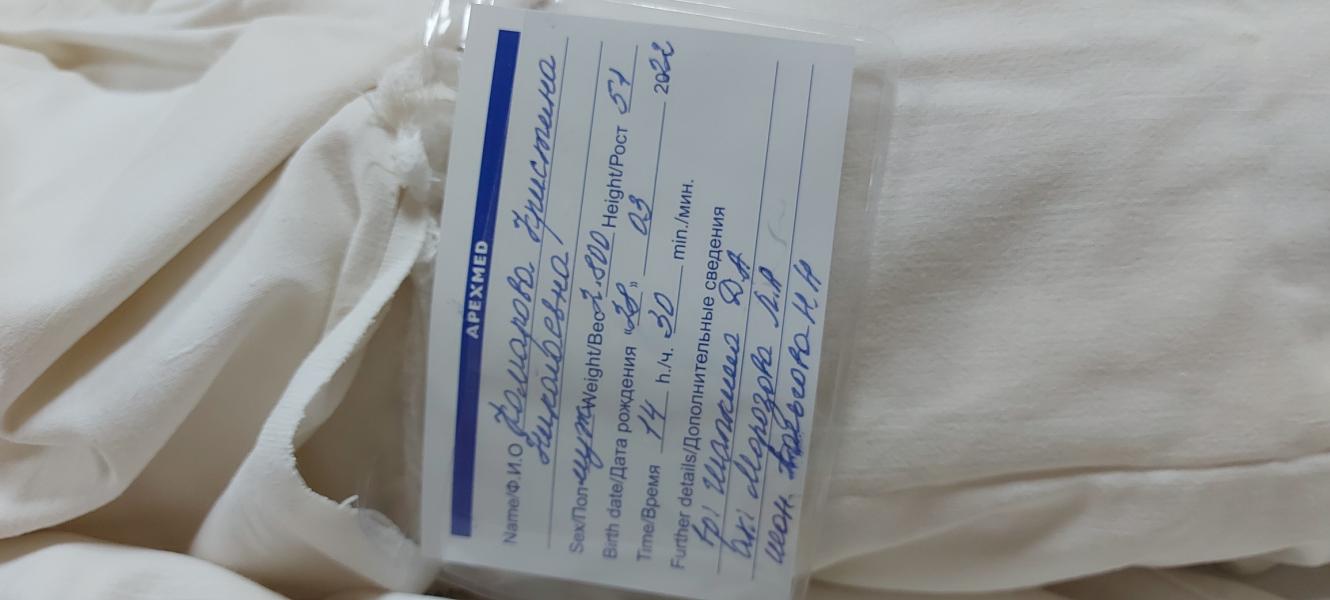 APEXMED
Name/Ф.И.О Комарова Кристина
Николаевна
Sex/Пол муж Weight/Вес 2.800 Height/Рост 51
Birth date/Дата рождения "28" 03 2022
Time/Время 14 h./ч. 30 min./мин.
Further details/Дополнительные сведения
Вр: Шапкина Д.А
Ак: Морозова Л.А
неон. Н.Н